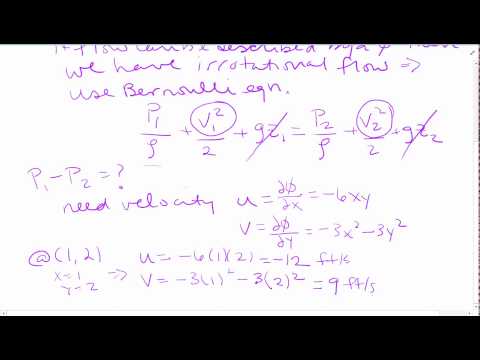 If flow can be described by a φ
we have irrotational flow ⇒
use Bernoulli eqn.
P₁/ρ + V₁²/2 + gz₁ = P₂/ρ + V₂²/2 + gz₂
P₁ − P₂ = ?
need velocity
u = ∂φ/∂x = −6xy
v = ∂φ/∂y = −3x² − 3y²
@ (1, 2) u = −6(1)(2) = −12 ft/s
x = 1
y = 2 ⇒ v = −3(1)² − 3(2)² = 9 ft/s